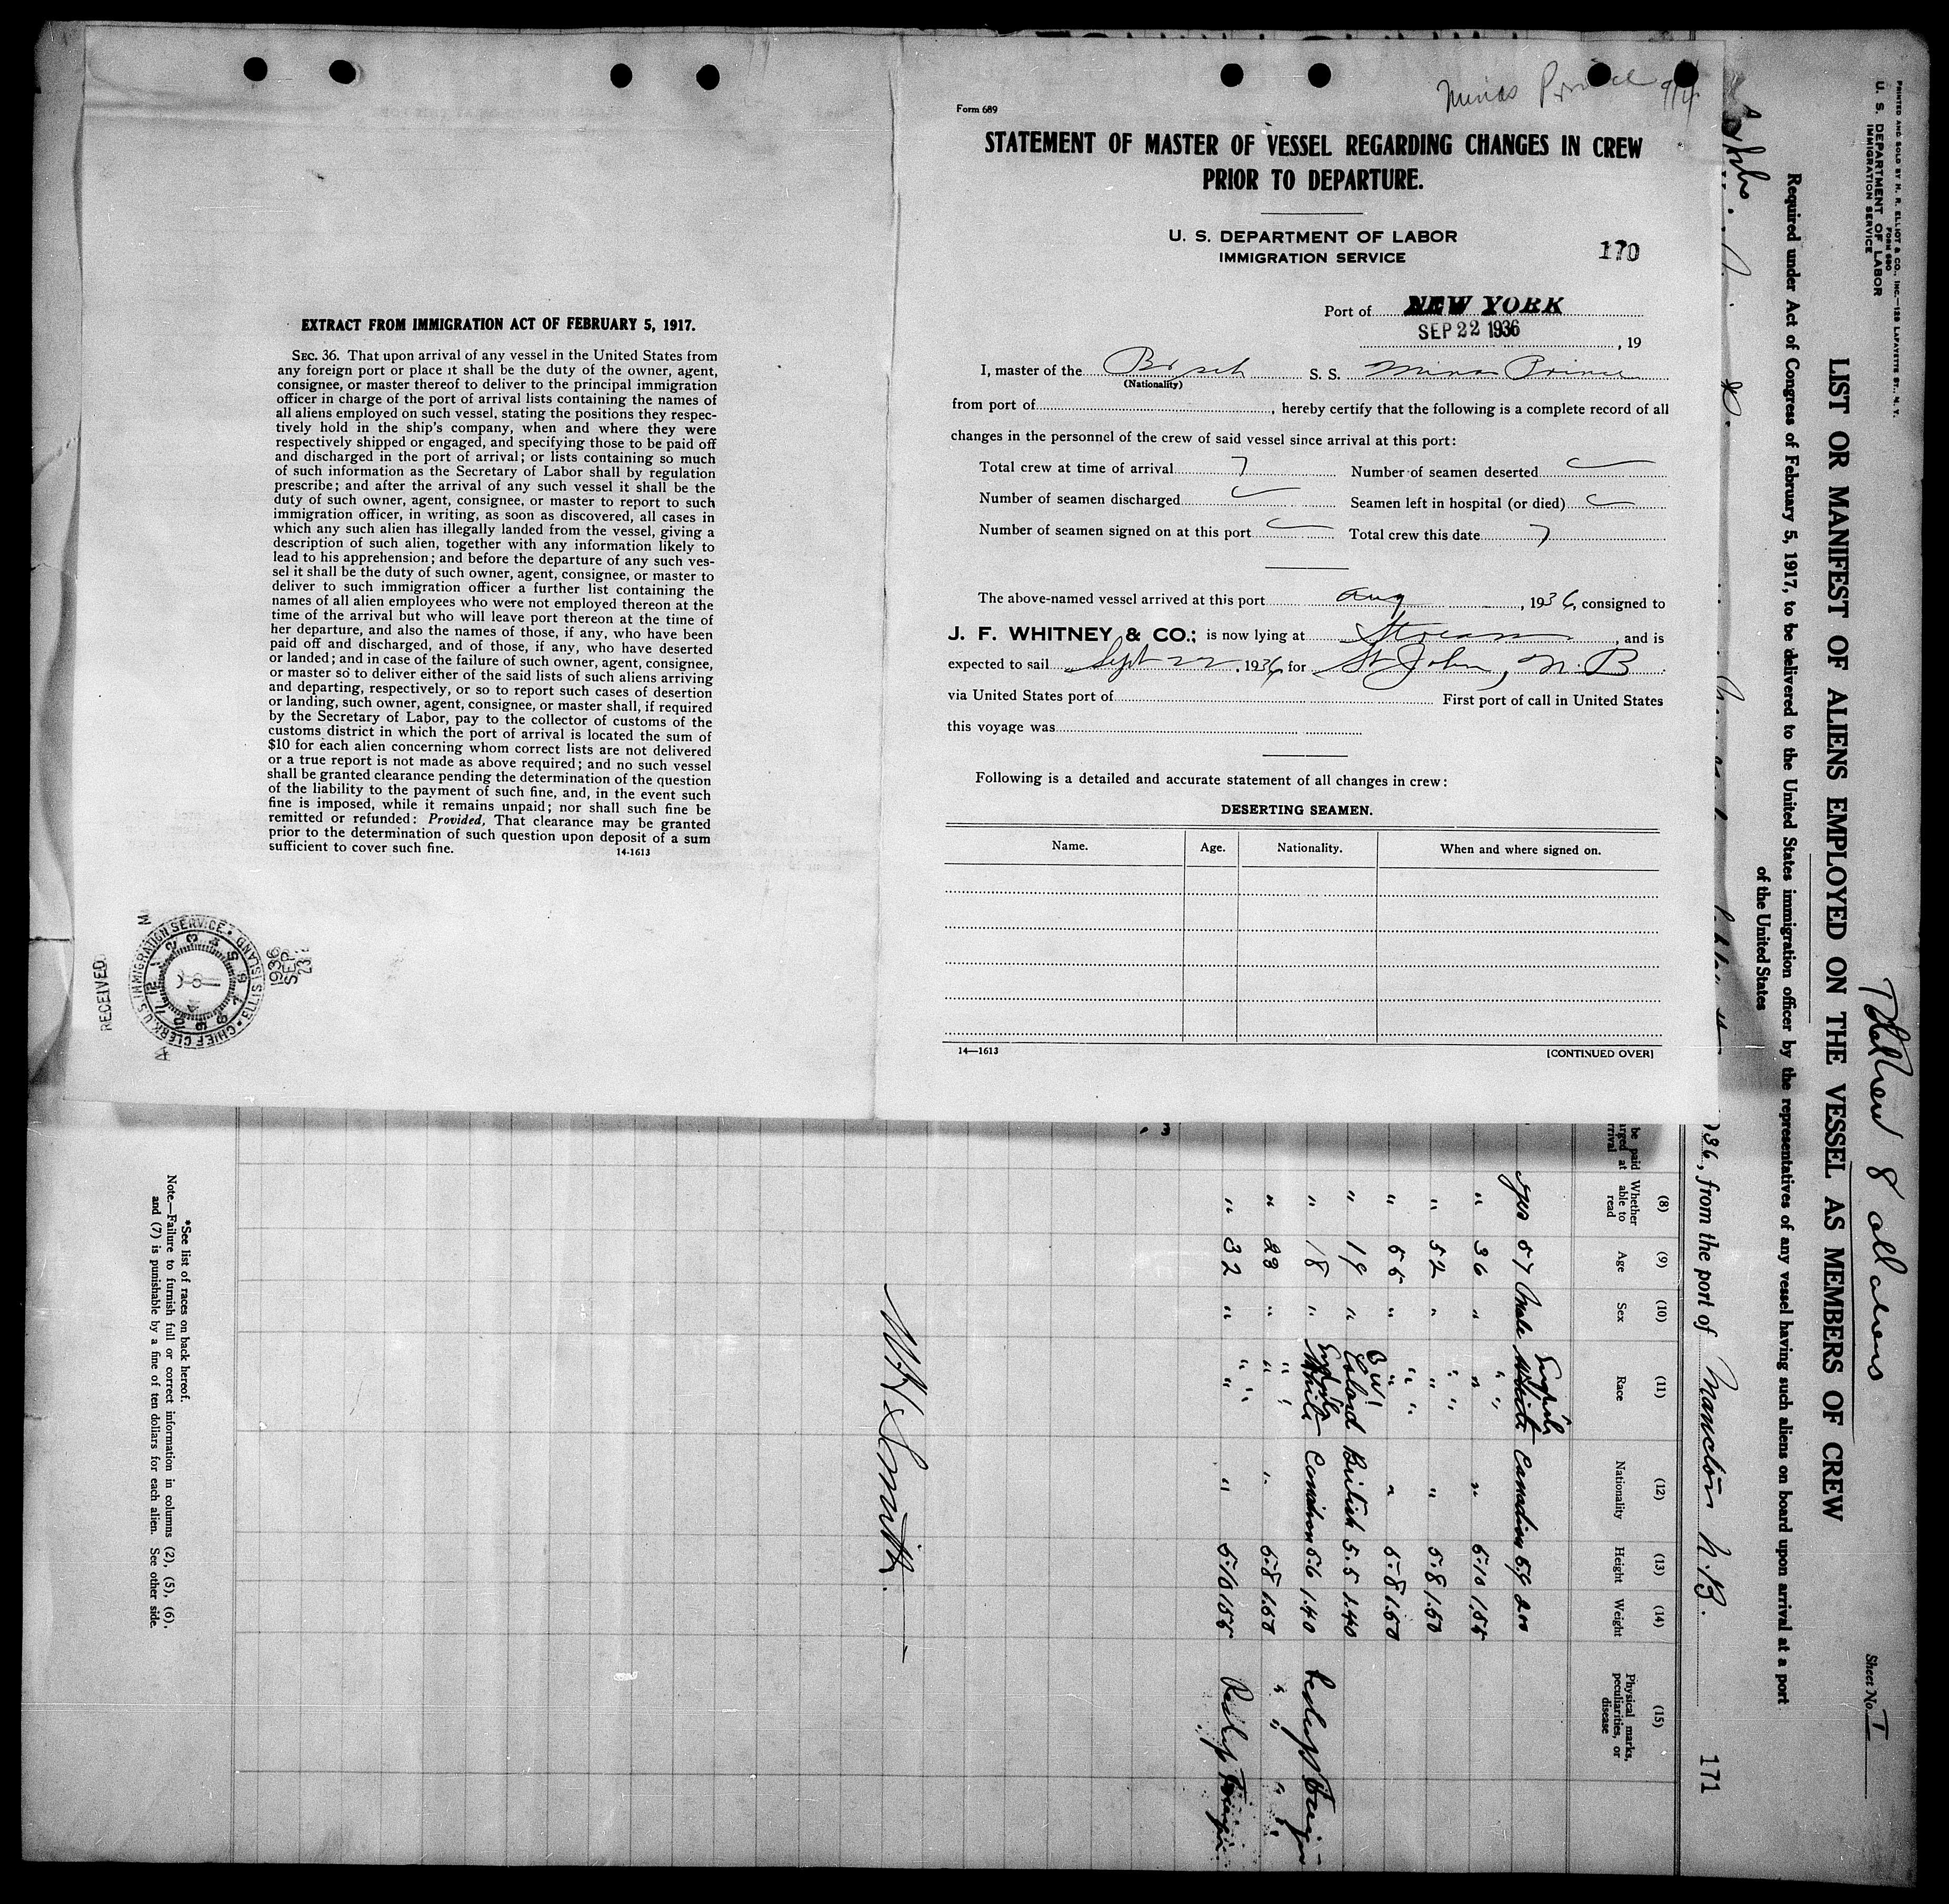 EXTRACT FROM IMMIGRATION ACT OF FEBRUARY 5, 1917.
SEC. 36. That upon arrival of any vessel in the United States from
any foreign port or place it shall be the duty of the owner, agent,
consignee, or master thereof to deliver to the principal immigration
officer in charge of the port of arrival lists containing the names of
all aliens employed on such vessel, stating the positions they respec-
tively hold in the ship's company, when and where they were
respectively shipped or engaged, and specifying those to be paid off
and discharged in the port of arrival; or lists containing so much
of such information as the Secretary of Labor shall by regulation
prescribe; and after the arrival of any such vessel it shall be the
duty of such owner, agent, consignee, or master to report to such
immigration officer, in writing, as soon as discovered, all cases in
which any such alien has illegally landed from the vessel, giving a
description of such alien, together with any information likely to
lead to his apprehension; and before the departure of any such ves-
sel it shall be the duty of such owner, agent, consignee, or master to
deliver to such immigration officer a further list containing the
names of all alien employees who were not employed thereon at the
time of the arrival but who will leave port thereon at the time of
her departure, and also the names of those, if any, who have been
paid off and discharged, and of those, if any, who have deserted
or landed; and in case of the failure of such owner, agent, consignee,
or master so to deliver either of the said lists of such aliens arriving
and departing, respectively, or so to report such cases of desertion
or landing, such owner, agent, consignee, or master shall, if required
by the Secretary of Labor, pay to the collector of customs of the
customs district in which the port of arrival is located the sum of
$10 for each alien concerning whom correct lists are not delivered
or a true report is not made as above required; and no such vessel
shall be granted clearance pending the determination of the question
of the liability to the payment of such fine, and, in the event such
fine is imposed, while it remains unpaid; nor shall such fine be
remitted or refunded: Provided, That clearance may be granted
prior to the determination of such question upon deposit of a sum
sufficient to cover such fine.
14-1613
RECEIVED
U.S. IMMIGRATION SERVICE · ELLIS ISLAND · CHIEF CLERK
1936
SEP
23
Minas Prince 9/4
Form 689
STATEMENT OF MASTER OF VESSEL REGARDING CHANGES IN CREW
PRIOR TO DEPARTURE.
U. S. DEPARTMENT OF LABOR
IMMIGRATION SERVICE
170
Port of NEW YORK
SEP 22 1936, 19
I, master of the Brsch S. S. Minas Prince
(Nationality)
from port of , hereby certify that the following is a complete record of all
changes in the personnel of the crew of said vessel since arrival at this port:
Total crew at time of arrival 7 Number of seamen deserted
Number of seamen discharged Seamen left in hospital (or died)
Number of seamen signed on at this port Total crew this date 7
The above-named vessel arrived at this port Aug, 1936, consigned to
J. F. WHITNEY & CO.; is now lying at Stream, and is
expected to sail Sept 22, 1936, for St John, N. B.
via United States port of First port of call in United States
this voyage was
Following is a detailed and accurate statement of all changes in crew:
DESERTING SEAMEN.
Name. Age. Nationality. When and where signed on.
14—1613
[CONTINUED OVER]
PRINTED AND SOLD BY H. R. ELLIOT & CO., INC.—129 LAFAYETTE ST., N. Y.
FORM 680
U. S. DEPARTMENT OF LABOR
IMMIGRATION SERVICE
Total Crew 8 all aliens
Sheet No. 1
LIST OR MANIFEST OF ALIENS EMPLOYED ON THE VESSEL AS MEMBERS OF CREW
Required under Act of Congress of February 5, 1917, to be delivered to the United States immigration officer by the representatives of any vessel having such aliens on board upon arrival at a port
of the United States
1936, from the port of Moncton N.B.
171
(8) (9) (10) (11) (12) (13) (14) (15)
be paid
arged at
rrival
Whether
able to
read
Age
Sex
Race
Nationality
Height
Weight
Physical marks,
peculiarities, or
disease
yes 57 Male English White Canadian 5.9 200
" 36 " " " 5.10 155
" 52 " " " 5.8 150
" 55 " " " 5.8 150
" 19 " B W I Colord British 5.5 140
" 18 " English White Canadian 5.6 140
" 23 " " " 5.8 150 " "
" 32 " " " 5.10 155
W. H. Smith.
*See list of races on back hereof.
Note.—Failure to furnish full or correct information in columns (2), (5), (6),
and (7) is punishable by a fine of ten dollars for each alien. See other side.